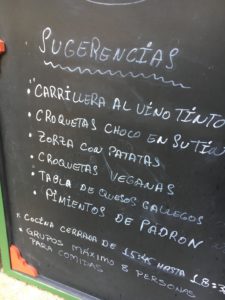 SUGERENCIAS
• CARRILLERA AL VINO TINTO
• CROQUETAS CHOCO EN SU TIN
• ZORZA CON PATATAS
• CROQUETAS VEGANAS
• TABLA DE QUESOS GALLEGOS
• PIMIENTOS DE PADRON
• COCINA CERRADA DE HASTA
• GRUPOS MÁXIMO 8 PERSONAS
PARA COMIDAS